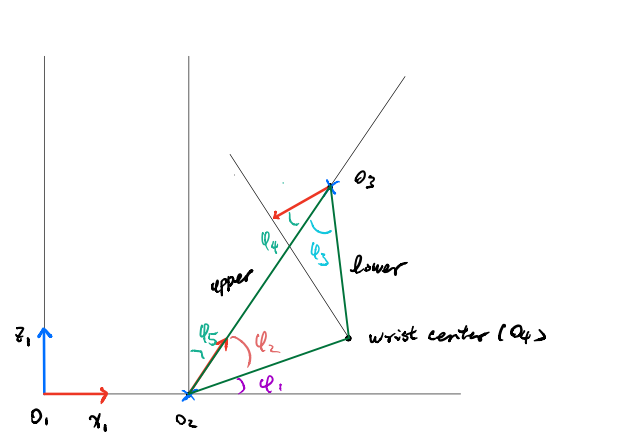 O3
φ4
φ3
upper
lower
z1
φ5
φ2
wrist center (O4)
φ1
O1
x1
O2